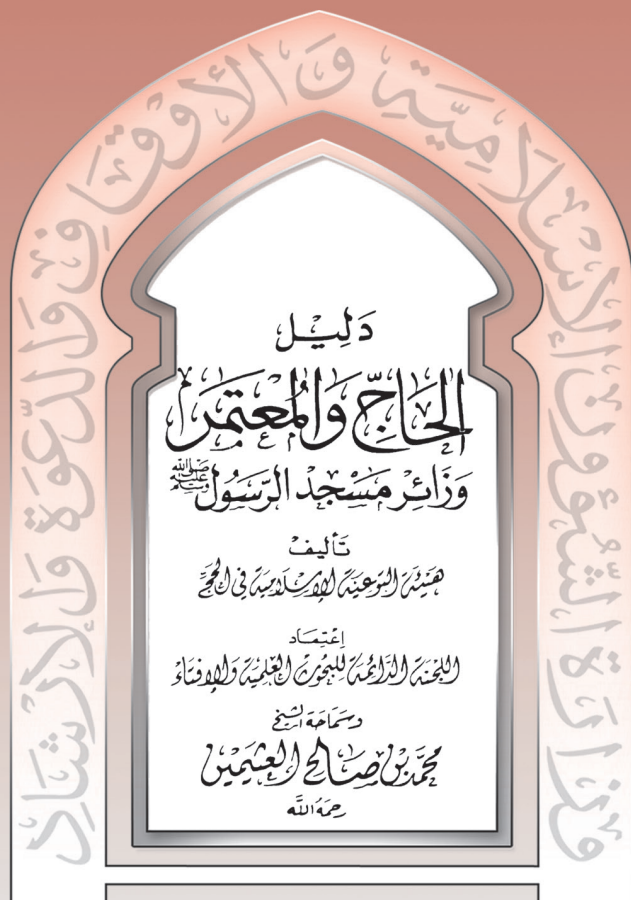 وزارة الشؤون الإسلامية والأوقاف والدعوة والإرشاد
دَلِيل
الحَاجِّ وَالمُعْتَمِر
وَزَائِر مَسْجِد الرَّسُول ﷺ
تَأليف
هَيئَة التَّوعيَة الإسْلَاميَة في الحَجِّ
اِعْتِمَاد
اللجْنَة الدَّائِمَة للبُحُوث العِلْميَّة وَالإفتَاء
وسَمَاحَة الشيخ
محمَّد بن صَالِح العثَيمين
رحمَهُ اللَّه